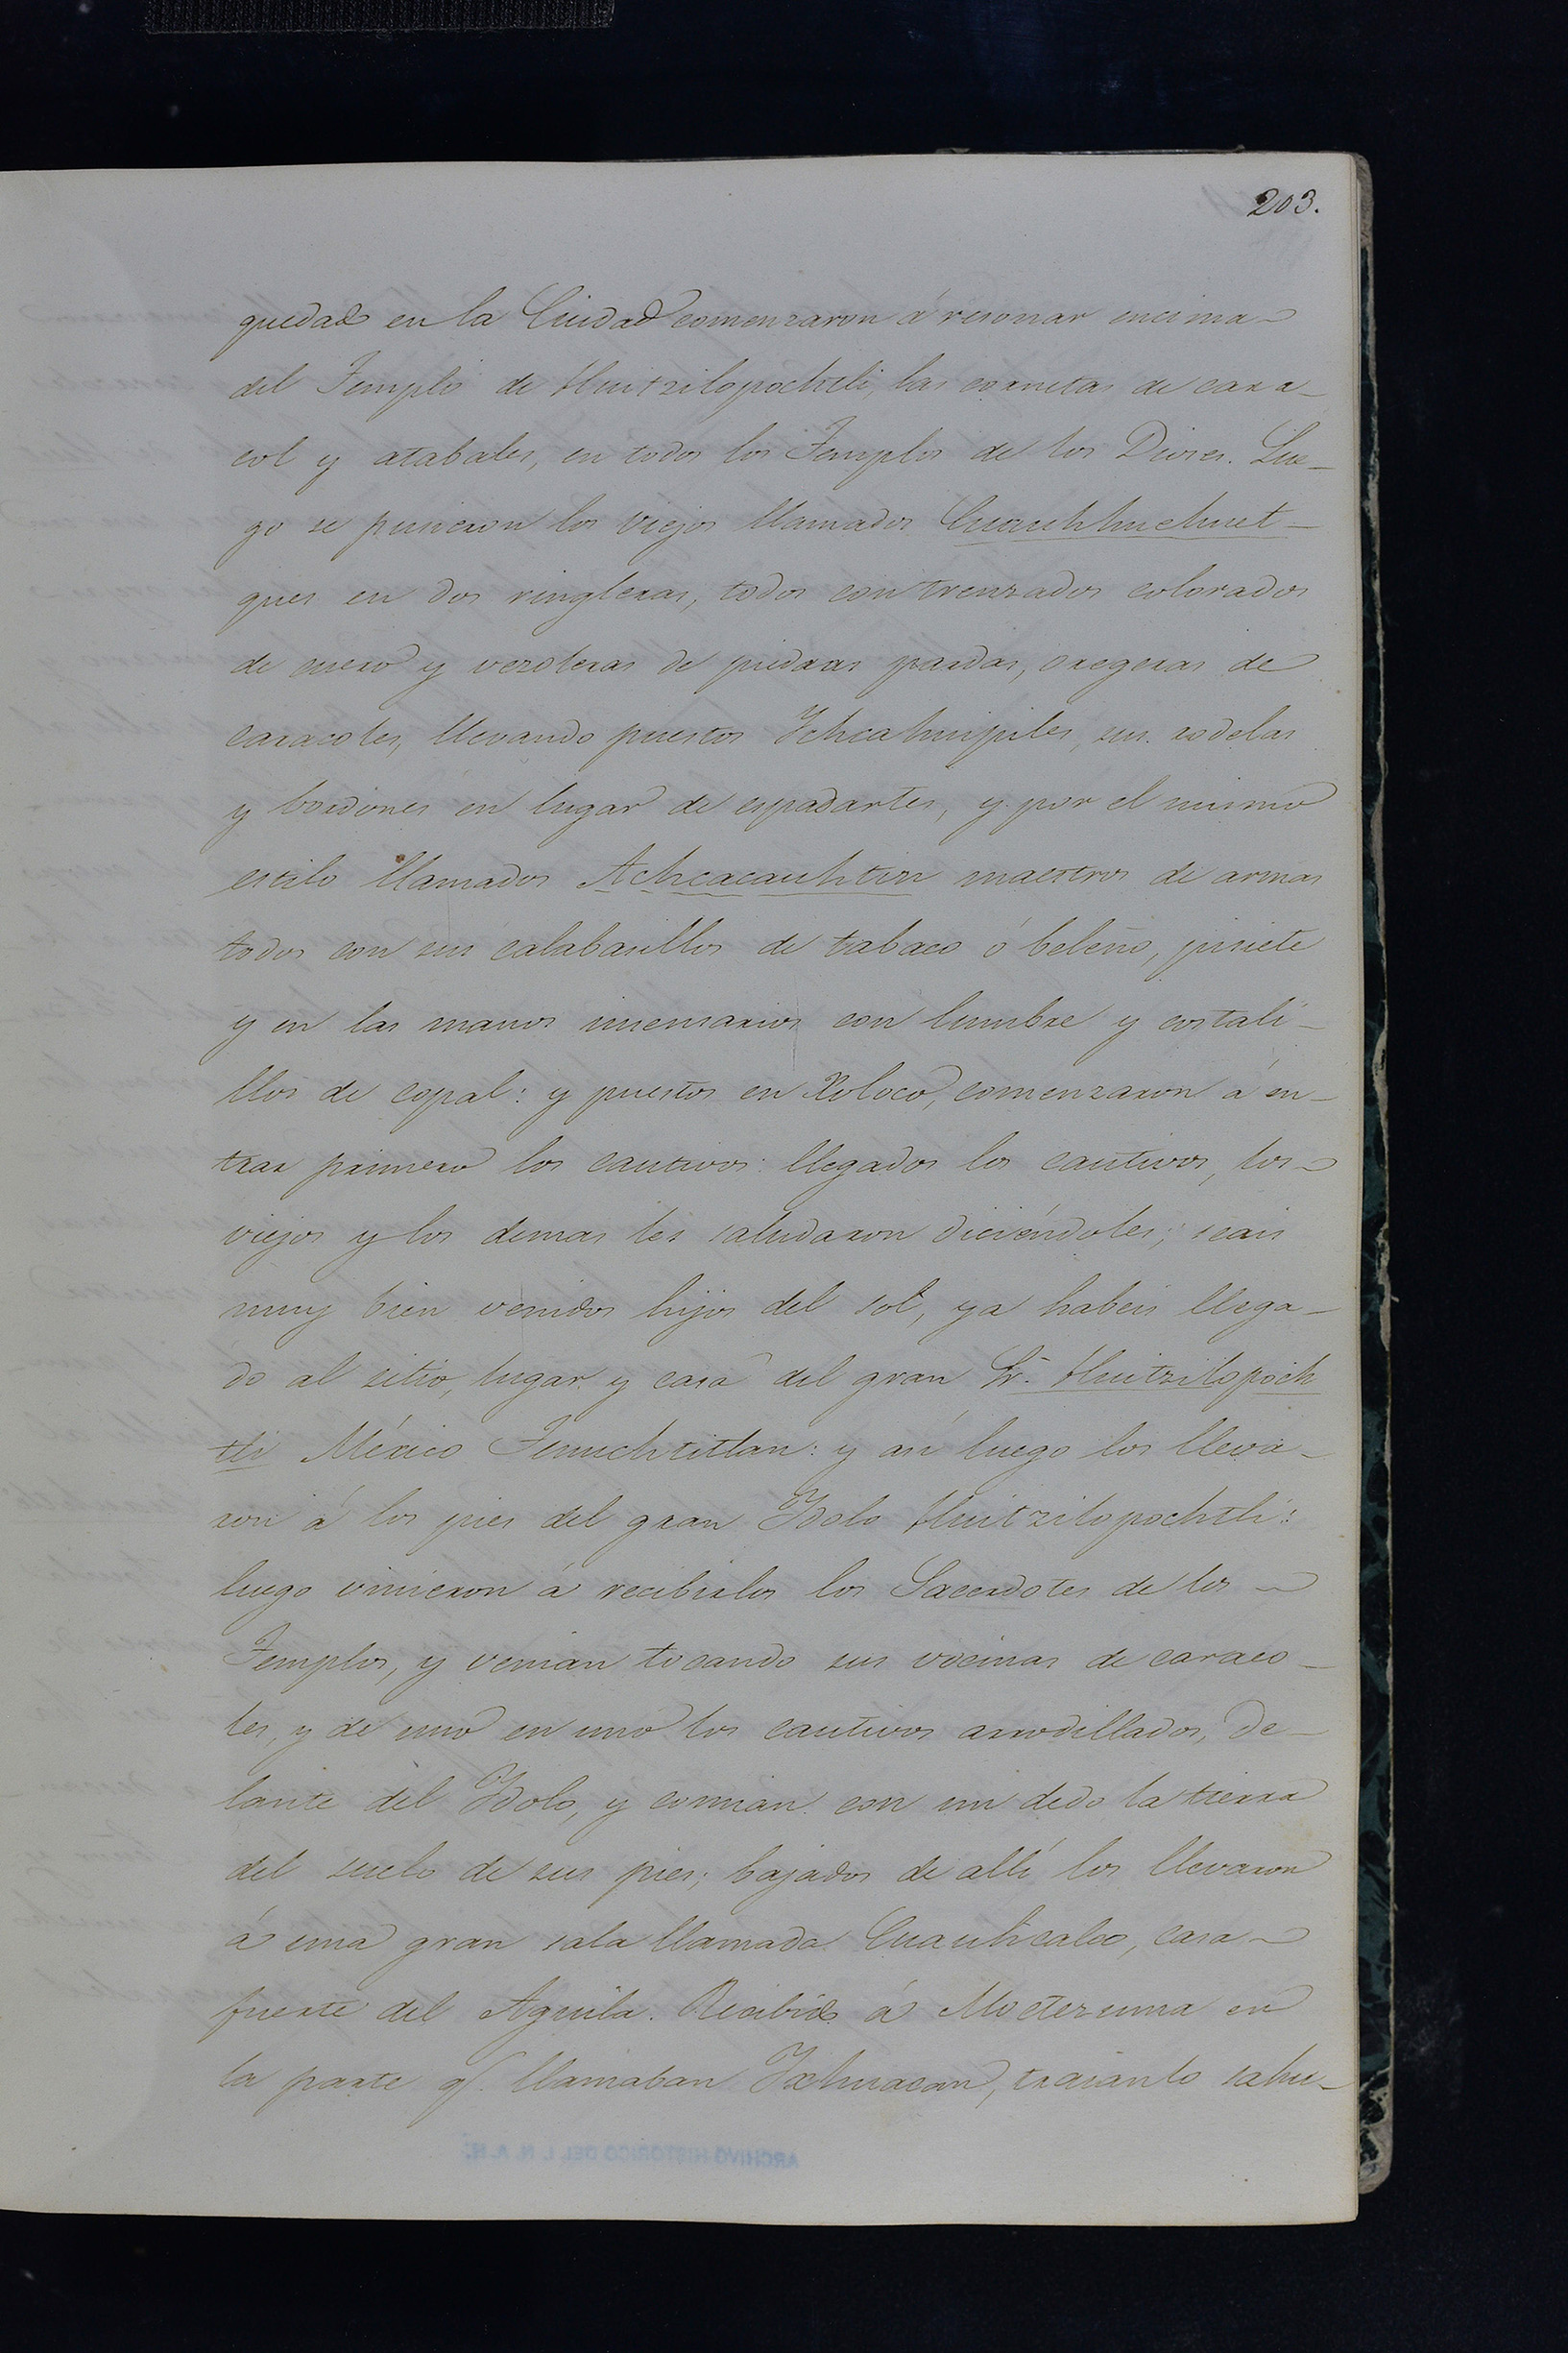 203.
quedado en la Ciudad comenzaron á resonar encima
del Templo de Huitzilopochtli, las cornetas de cara-
col y atabales, en todos los Templos de los Dioses. Lue-
go se pusieron los viejos llamados Cuauhhuehuet-
ques en dos ringleras, todos con trenzados colorados
de cuero y vezoleras de piedras pardas, oregeras de
caracoles, llevando puestos Ychcahuipiles, sus rodelas
y bordones en lugar de espadartes, y por el mismo
estilo llamados Achcacauhtin maestros de armas
todos con sus calabasillos de tabaco ó beleño, pisiete
y en las manos insensarios con lumbre y costali-
llos de copal: y puestos en Xoloco, comenzaron á en-
trar primero los cautivos: llegados los cautivos, los
viejos y los demas les saludaron diciéndoles; seais
muy bien venidos hijos del sol, ya habeis llega-
do al sitio, lugar y casa del gran Sr. Huitzilopoch
tli México Tenuchtitlan: y así luego los lleva-
ron á los pies del gran Ydolo Huitzilopochtli:
luego vinieron á recibirlos los Sacerdotes de los
Templos, y venian tocando sus vocinas de caraco-
les, y de uno en uno los cautivos arrodillados, de-
lante del Ydolo, y comian con un dedo la tierra
del suelo de sus pies; bajados de allí los llevaron
á una gran sala llamada Cuauhcalco, casa
fuerte del Aguila. Recibido á Moctezuma en
la parte q. llamaban Yxhuacan, traianlo sahu-
ARCHIVO HISTORICO DEL I. N. A. H.